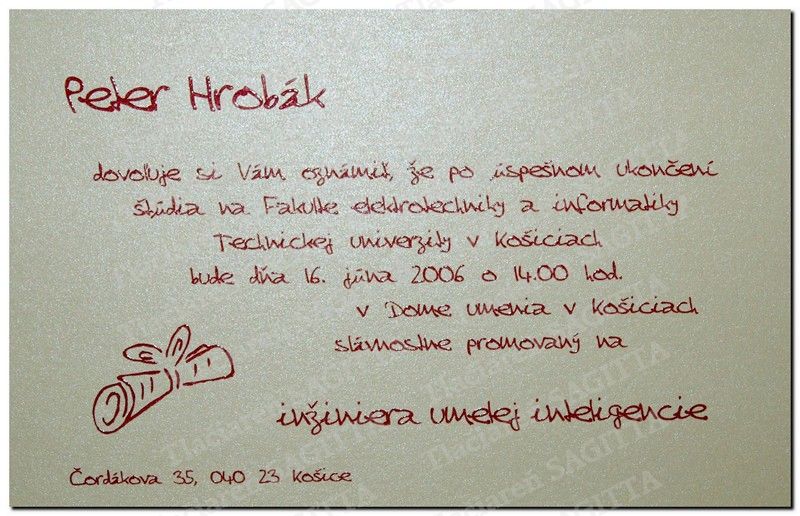 Peter Hrobák
dovoľuje si Vám oznámiť, že po úspešnom ukončení
štúdia na Fakulte elektrotechniky a informatiky
Technickej univerzity v Košiciach
bude dňa 16. júna 2006 o 14.00 hod.
v Dome umenia v Košiciach
slávnostne promovaný na
inžiniera umelej inteligencie
Čordákova 35, 040 23 Košice
Tlačiareň SAGITTA